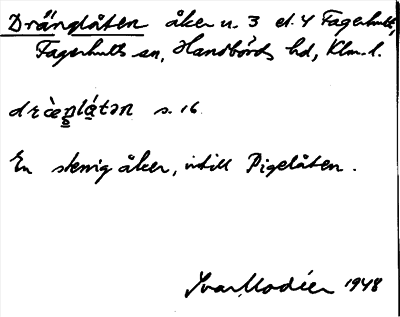 Drängläten åker u. 3 el. 4 Fagerhult,
Fagerhults sn, Handbörds hd, Klm. l.
dræ̀ŋlátən s. 16
En stenig åker, intill Pigelåten.
Ivar Modéer 1948